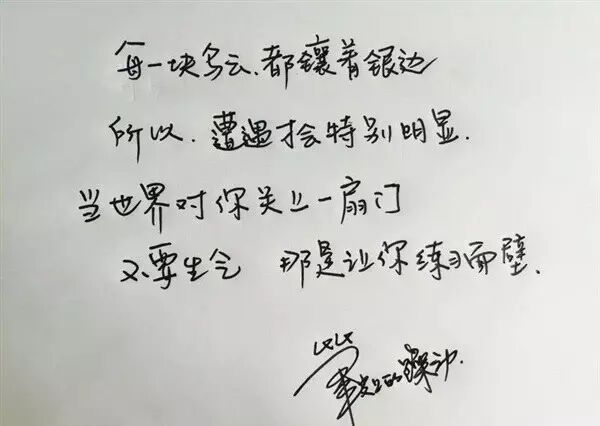 每一块乌云、都镶着银边
所以、遭遇才会特别明显.
当世界对你关上一扇门
不要生气 那是让你练习面壁.
的躁神.